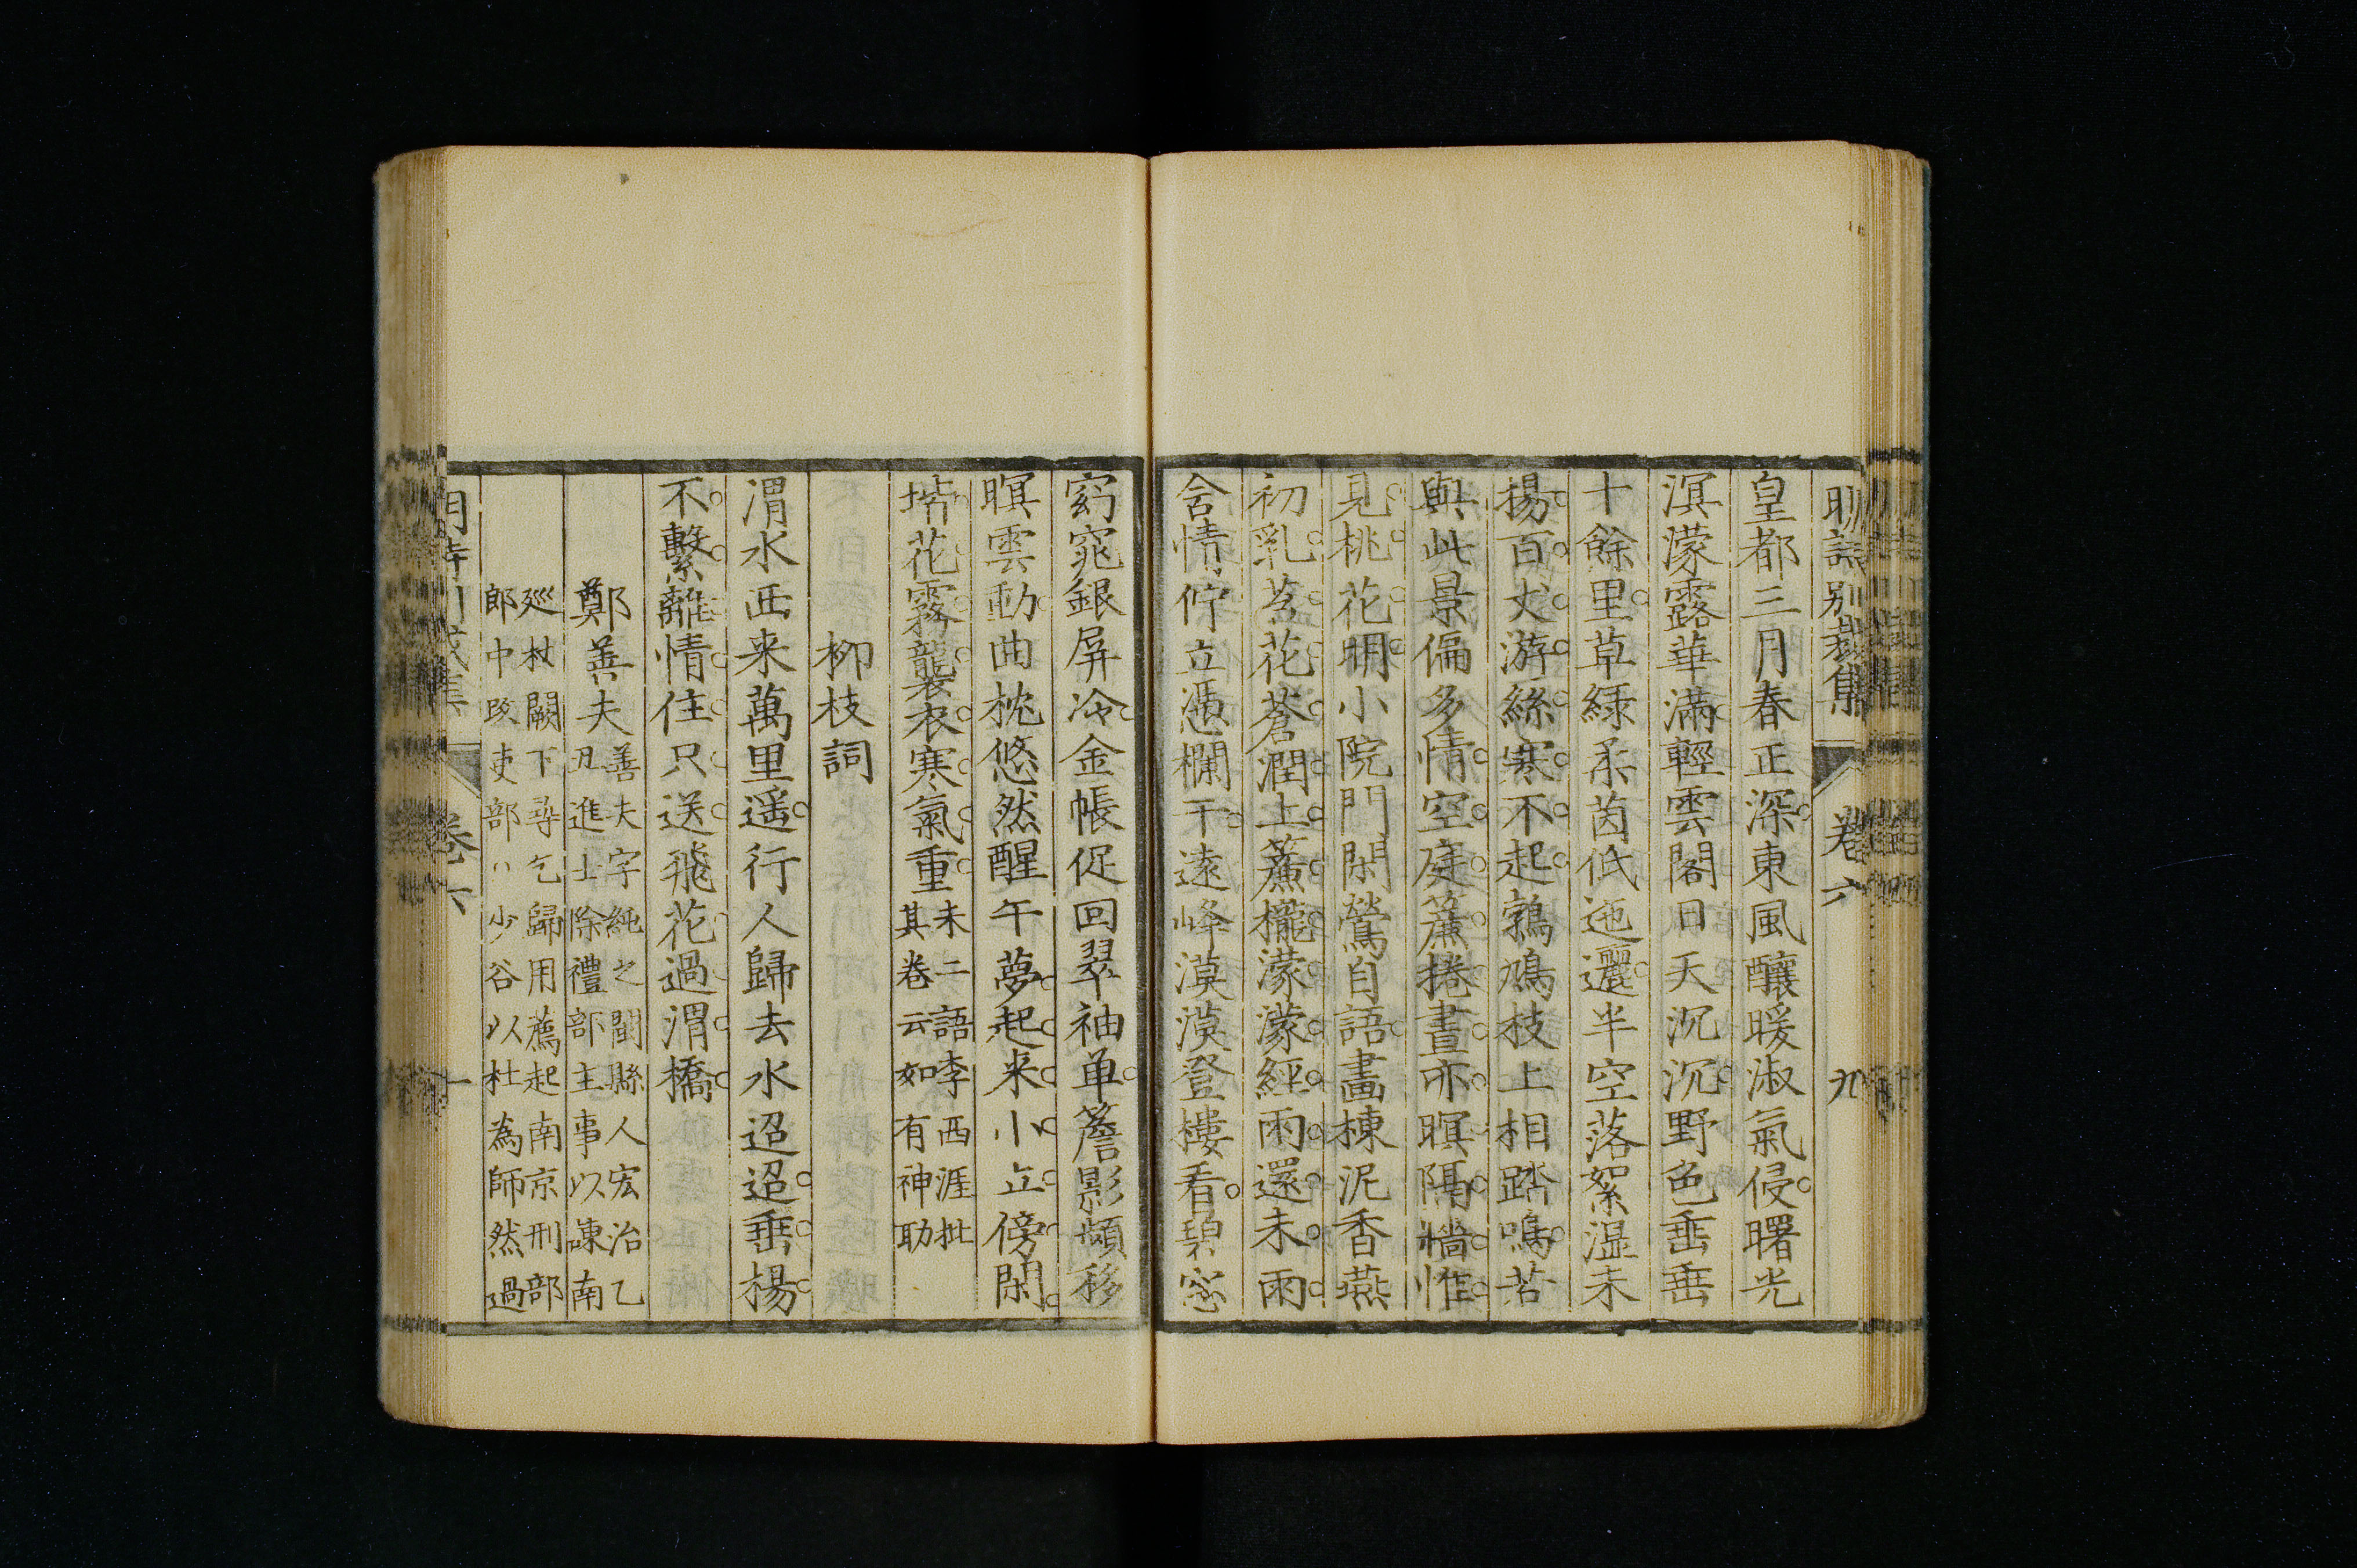 明詩別裁集 卷六 九
皇都三月春正深東風釀暖淑氣侵曙光
溟濛露華滿輕雲閣日天沉沉野色垂垂
十餘里草綠柔茵低迤邐半空落絮溼未
揚百丈游絲寒不起鵓鳩枝上相踏鳴苦
與此景偏多情空庭簾捲晝亦暝隔牆惟
見桃花明小院門閑鶯自語畫棟泥香燕
初乳苔花蒼潤上簾櫳濛濛經雨還未雨
含情佇立憑欄干遠峰漠漠登樓看碧窓
窈窕銀屏冷金帳促回翠袖单簷影頻移
暝雲動曲枕悠然醒午夢起来小立傍闌
堦花霧襲衣寒氣重
未二語李西涯批
其卷云如有神助
柳枝詞
渭水西来萬里遥行人歸去水迢迢垂楊
不繫離情住只送飛花過渭橋
鄭善夫
善夫字純之閩縣人宏治乙
丑進士除禮部主事以諫南
廵杖闕下尋乞歸用薦起南京刑部
郎中改吏部 少谷以杜為師然過
卷六